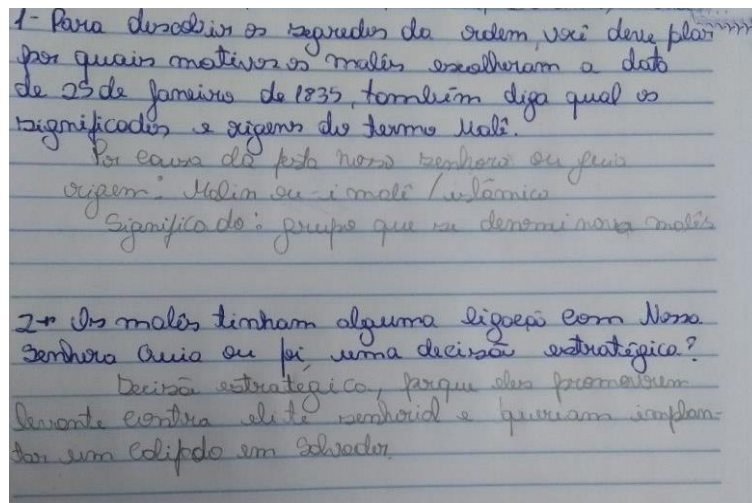 1- Para descobrir os segredos da ordem, você deve falar
por quais motivos os malês escolheram a data
de 25 de Janeiro de 1835, também diga qual os
significados e origens do termo Malê.
Por causa da festa nossa senhora ou guia
origem: Malin ou imalê / islâmico
Significado: grupo que se denominava malês
2- Os malês tinham alguma ligação com Nossa
Senhora Guia ou foi uma decisão estratégica?
Decisão estratégica, porque eles promoverem
levante contra elite senhorial e queriam implan-
tar um Califado em Salvador.